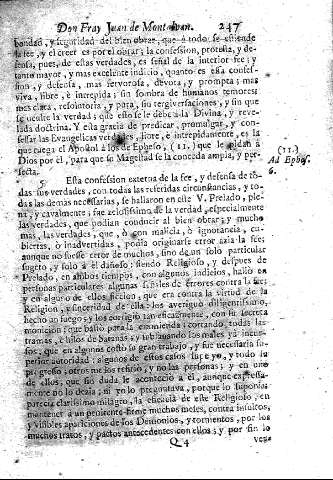 Don Fray Juan de Montalvan. 247
bondad, y seguridad del bien obrar, que à todo se estiende
la fee, y el creer es por el obrar; la confession, protesta, y de-
fensa, pues, de estas verdades, es señal de la interior fee; y
tanto mayor, y mas excelente indicio, quanto es essa confes-
sion, y defensa, mas fervorosa, devota, y prompta; mas
viva, libre, è intrepida; sin sombra de humanos temores;
mas clara, resoluta, y pura, sin tergiversaciones, y sin que
se oculte la verdad; que esto se le debe à la Divina, y reve-
lada doctrina. Y esta gracia de predicar, promulgar, y con-
fessar las Evangelicas verdades, libre, è intrepidamente, es la
que ruega el Apostol à los de Epheso, (11.) que le pidan à
Dios por èl, para que su Magestad se la conceda amplia, y per-
fecta.
(11.)
Ad Ephes.
6.
5 Esta confession externa de la fee, y defensa de to-
das sus verdades, con todas las referidas circunstancias, y to-
das las demàs necessarias, se hallaron en este V. Prelado, ple-
na, y cavalmente; fue zelosissimo de la verdad, especialmente
las verdades, que podian conducir al bien obrar; y mucho
mas, las verdades, que, ò con malicia, ò ignorancia, cu-
biertas, ò inadvertidas, podia originarse error àzia la fee;
aunque no fuesse error de muchos, sino de un solo particular
sugeto, y solo à èl dañoso: siendo Religioso, y despues de
Prelado, en ambos tiempos, con algunos indicios, hallò en
personas particulares algunas señales de errores contra la fee,
y en alguno de ellos ficcion, que era contra la virtud de la
Religion, y sinceridad de ella: los averiguò diligentissimo,
hecho un fuego y los corrigiò tan eficazmente, con su secreta
monicion, que bastò para la emmienda; cortando, todas las
tramas, è hilos de Satanàs
sos; que en algunos costò gran trabajo, y fue necessaria su-
perior autoridad: algunos de estos casos supe yo, y todo su
progresso; otros me los refiriò, y no las personas; y en uno
de ellos, que sin duda le aconteciò à èl, aunque expressa-
mente no lo decia; ni yo lo preguntava, porque lo suponìa;
parecìa clarissimo milagro, la eficacia de este Religioso, en
mantener à un penitente firme muchos meses, contra insultos,
y visibles apariciones de los Demonios, y tormentos, por los
muchos tratos, y pactos antecedentes con ellos; y por fin lo
Q 4 ven-